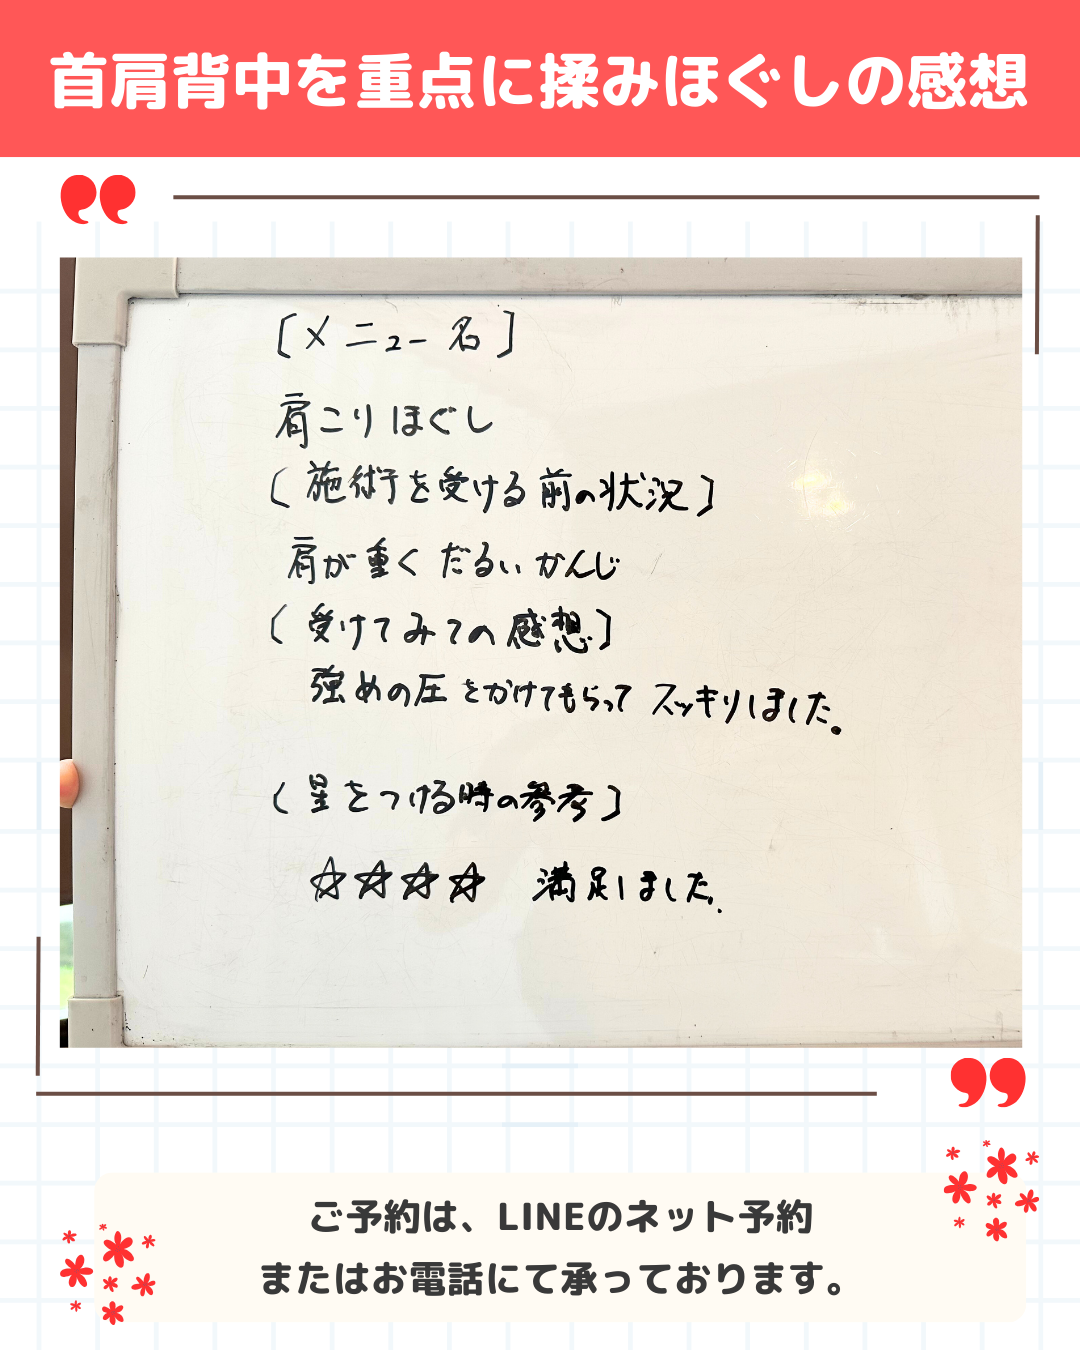 首肩背中を重点に揉みほぐしの感想
[メニュー名]
肩こりほぐし
[施術を受ける前の状況]
肩が重くだるいかんじ
[受けてみての感想]
強めの圧をかけてもらってスッキリしました。
[星をつける時の参考]
☆☆☆☆ 満足しました.
ご予約は、LINEのネット予約
またはお電話にて承っております。